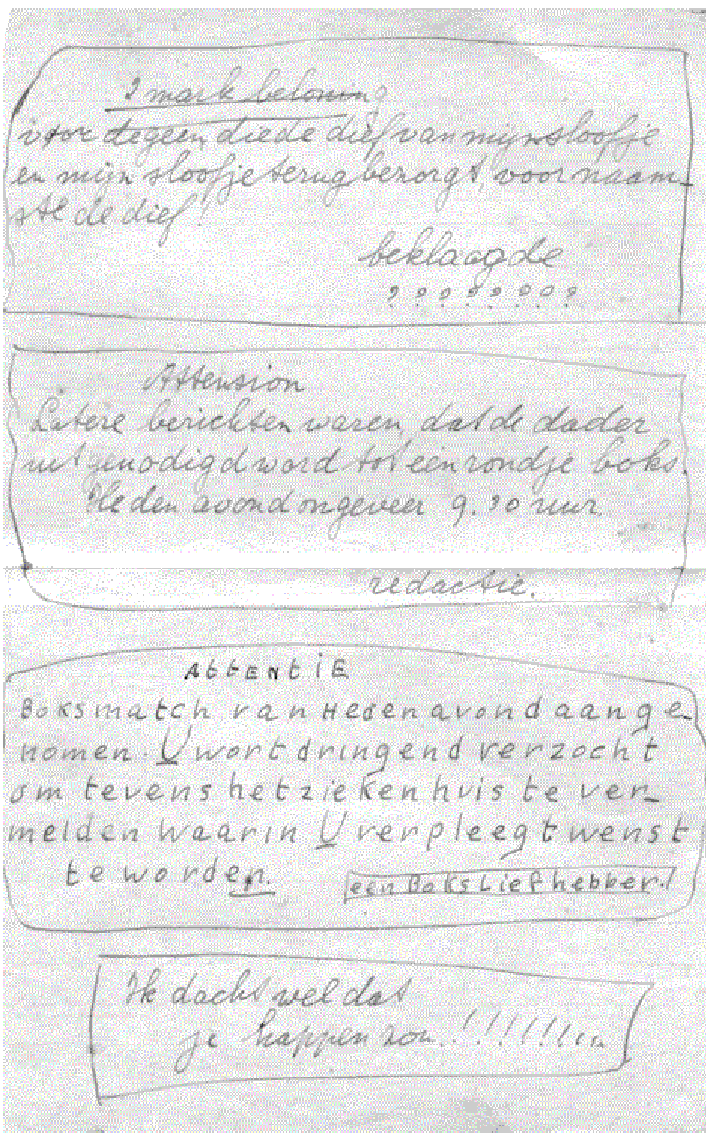 1 mark beloning
voor degeen die de dief van mijn sloofje
en mijn sloofje terug bezorgt, voornaam-
ste de dief!
beklaagde
? ? ? ? ? ? ? ?
Attension
Latere berichten waren, dat de dader
uitgenodigd word tot een rondje boks.
Heden avond ongeveer 9.30 uur.
redactie.
AttENtiE
Boksmatch van Heden avond aange-
nomen. U wort dringend verzocht
om tevens het ziekenhuis te ver-
melden waarin U verpleegt wenst
te worden.
een Boks Liefhebber!
Ik dacht wel dat
je happen zou..!!!!!!!...